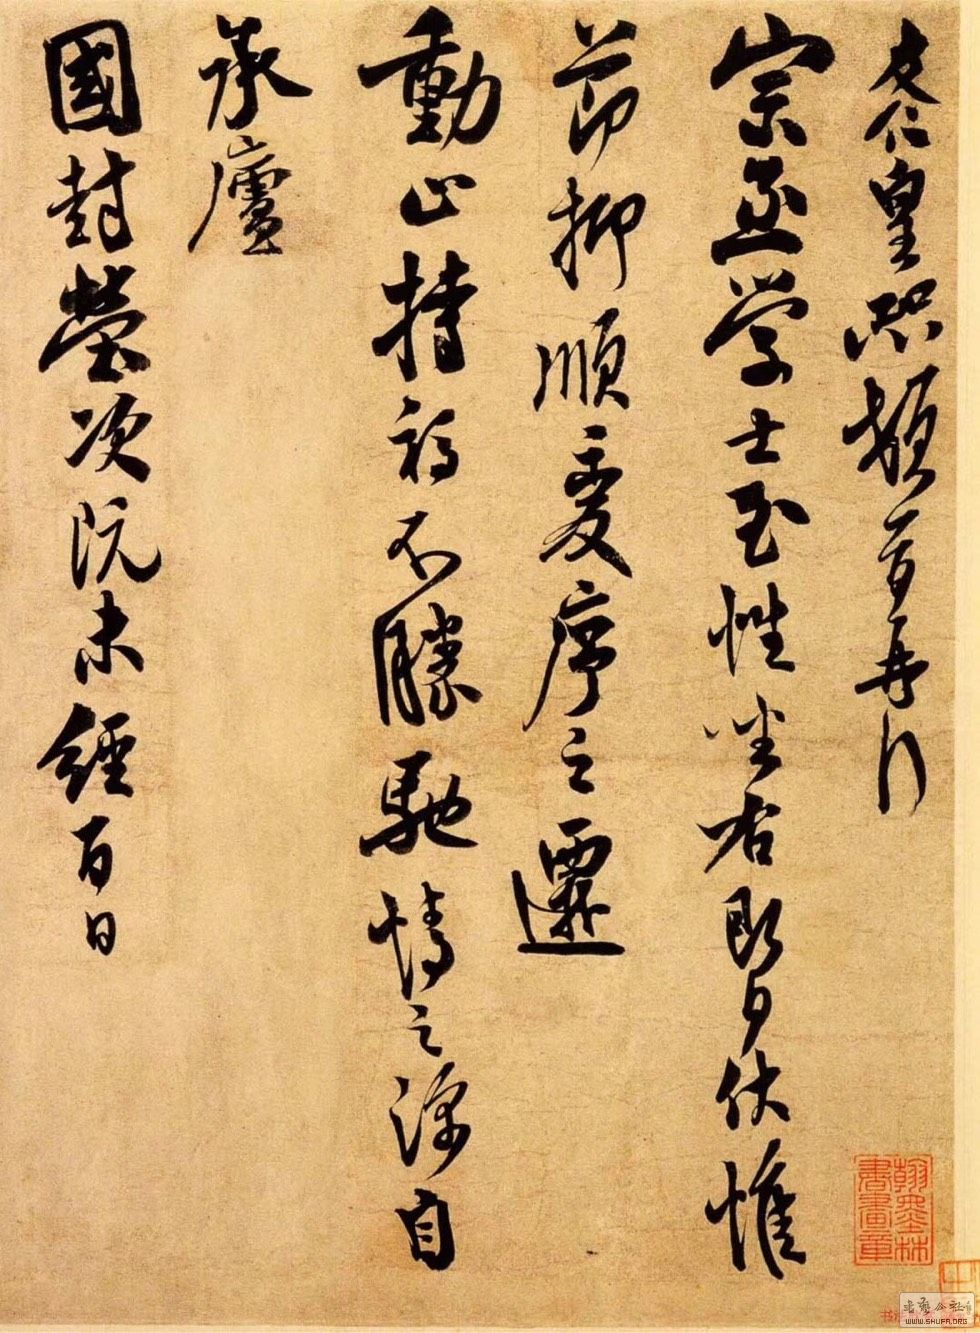 友仁皇恐頓首再拜
宗丞学士至性坐右即日伏惟
節抑順變序之遷
動止持福不勝馳情之深自
承廬
國封塋次未經百日
翰墨林
書畫章
書藝公社
WWW.SHUFA.ORG